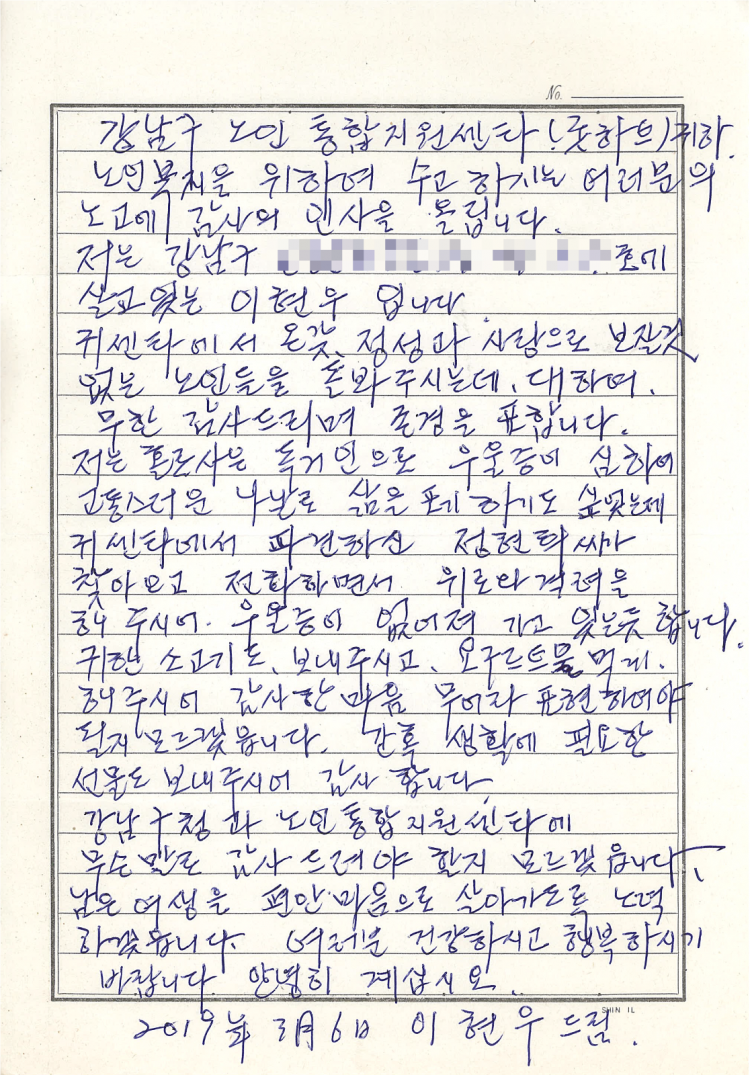 No.
강남구 노인 통합지원센타(롯하브)귀하.
노인복지을 위하여 수고하시는 여러분의
노고에 감사의 인사을 올립니다.
저는 강남구 호에
살고있는 이현우 입니다
귀센타에서 온갖 정성과 사랑으로 보잘것
없는 노인들을 돌봐주시는데, 대하여.
무한 감사드리며 존경을 표합니다.
저는 홀로사는 독거인으로 우울증이 심하여
고통스러운 나날로 삶을 포기하기도 싶었는데
귀센타에서 파견하신 정현탁씨가
찾아오고 전화하면서 위로와격려을
해주시어. 우울증이 없어져 가고 있는듯합니다.
귀한 소고기도, 보내주시고, 요구르트를 먹게.
해주시어 감사한 마음 무어라 표현하여야
될지 모르겠읍니다. 간혹 생활에 필요한
선물도 보내주시어 감사 합니다.
강남구청과 노인통합지원센타에
무슨말로 감사 드려야 할지 모르겠읍니다.
남은여생을 편안마음으로 살아가도록 노력
하겠읍니다. 여러분 건강하시고 행복하시기
바랍니다 안녕히 계십시요.
SHIN IL
2019年 3月 6日 이현우 드림.